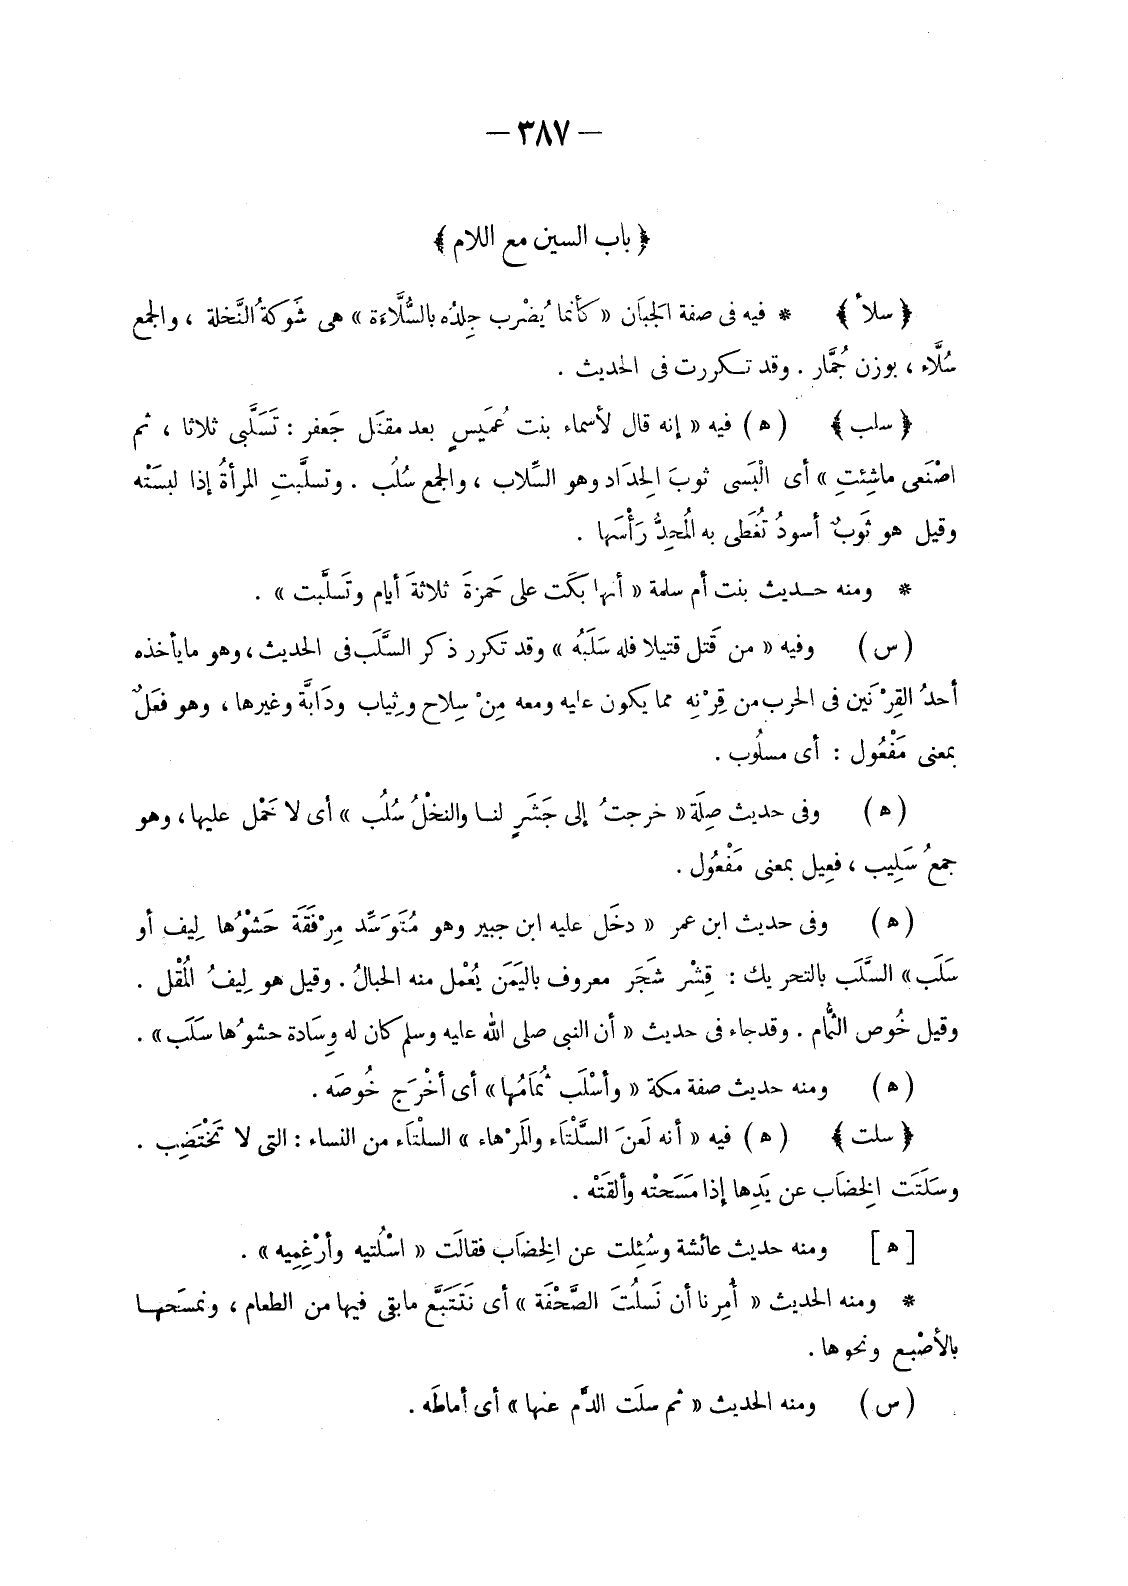 — ٣٨٧ —
﴿ باب السين مع اللام ﴾
﴿ سلأ ﴾ * فيه فى صفة الجَبَان « كأنما يُضْرب جِلدُه بالسُّلَّاءَة » هى شَوكةُ النَّخلة ، والجمع
سُلَّاء ، بوزن جُمَّار . وقد تكررت فى الحديث .
﴿ سلب ﴾ ( ه ) فيه « إنه قال لأسماء بنت عُمَيسٍ بعد مقتَل جَعفر : تَسَلَّبى ثلاثا ، ثم
اصْنَعى ماشِئتِ » أى الْبَسى ثوبَ الحِدَاد وهو السِّلاب ، والجمع سُلُب . وتسلَّبتِ المرأةُ إذا لبسَتْه
وقيل هو ثَوبٌ أسودُ تُغَطى به المُحِدُّ رَأْسَها .
* ومنه حديث بنت أم سلمة « أنها بكَت على حَمزةَ ثلاثةَ أيام وتَسلَّبت » .
( س ) وفيه « من قَتل قتيلا فله سَلَبُه » وقد تكرر ذكر السَّلَب فى الحديث ، وهو مايأخذه
أحدُ القِرْنَين فى الحرب من قِرْنِه مما يكون عليه ومعه مِنْ سِلاح وثِياب ودَابَّة وغيرها ، وهو فعَلٌ
بمعنى مَفْعُول : أى مسلُوب .
( ه ) وفى حديث صِلَة « خرجتُ إلى جَشَرٍ لنا والنخْلُ سُلُب » أى لا حَمْل عليها ، وهو
جمعُ سَلِيب ، فعِيل بمعنى مَفْعُول .
( ه ) وفى حديث ابن عمر « دخَل عليه ابن جبير وهو مُتَوَسِّد مِرْفَقَة حَشْوُها لِيف أو
سَلَب » السَّلَب بالتحريك : قِشْر شَجَر معروف باليَمَن يُعْمل منه الحبالُ . وقيل هو لِيفُ المُقْل .
وقيل خُوص الثُّمام . وقدجاء فى حديث « أن النبى صلى الله عليه وسلم كان له وِسَادة حشوُها سَلَب » .
( ه ) ومنه حديث صفة مكة « وأسْلَب ثُمَامُها » أى أخْرَج خُوصَه .
﴿ سلت ﴾ ( ه ) فيه « أنه لَعنَ السَّلْتَاء والمَرْهاء » السلْتَاء من النساء : التى لا تَخْتَضِب .
وسَلَتَت الخِضاَب عن يَدِها إذا مَسَحتْه وألقَتْه .
[ ه ] ومنه حديث عائشة وسُئِلت عن الخِضاَب فقالَت « اسْلُتيه وأرْغِمِيه » .
* ومنه الحديث « أُمِرنا أن نَسلُتَ الصَّحْفَة » أى نَتَتَبَّع مابقى فيها من الطعام ، ونمسَحها
بالأصْبع ونحوها .
( س ) ومنه الحديث « ثم سلَت الدَّم عنها » أى أماطَه .